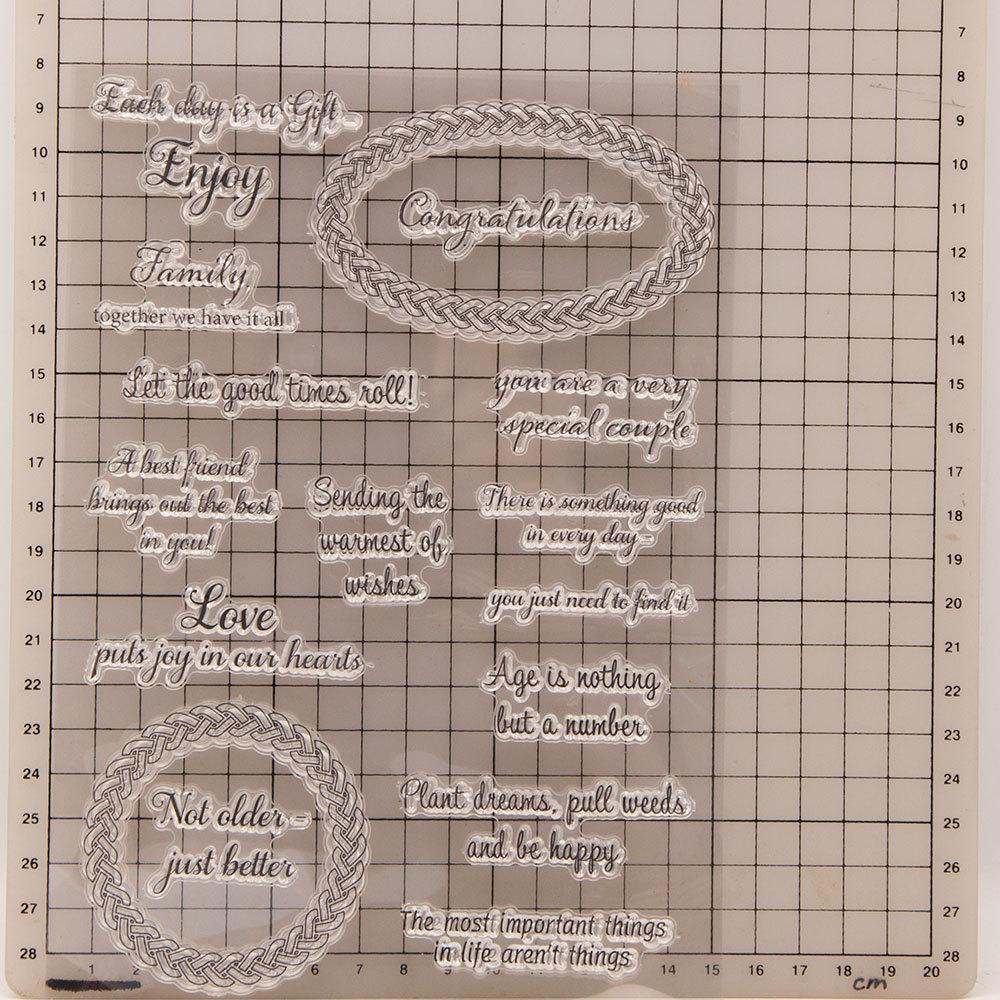 7
7
8
8
9
9
10
10
11
11
12
12
13
13
14
14
15
15
16
16
17
17
18
18
19
19
20
20
21
21
22
22
23
23
24
24
25
25
26
26
27
27
28
28
Each day is a Gift -
Enjoy
Congratulations
Family,
together we have it all
Let the good times roll!
you are a very
special couple
A best friend
brings out the best
in you!
Sending the
warmest of
wishes
There is something good
in every day -
you just need to find it
Love
puts joy in our hearts
Age is nothing
but a number
Not older -
just better
Plant dreams, pull weeds
and be happy
The most important things
in life aren't things
1 2 6 7 8 9 10 11 14 15 16 17 18 19 20
cm